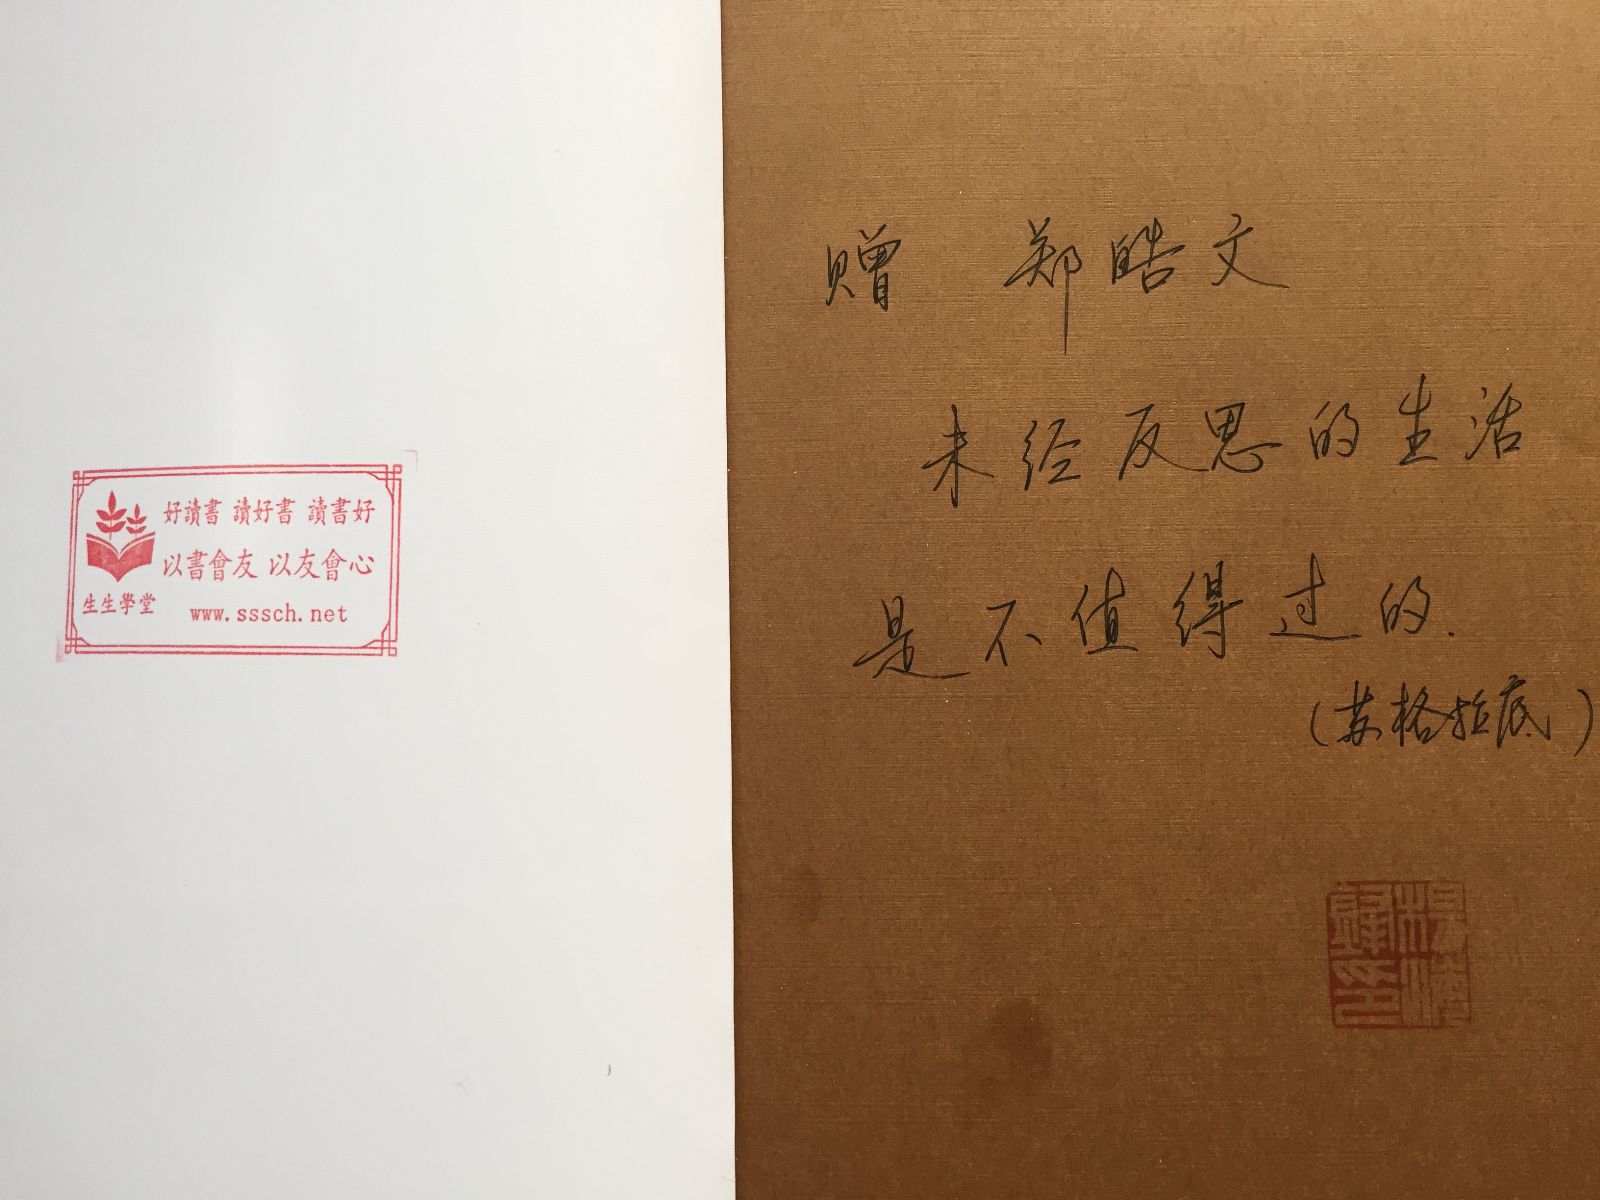 好讀書 讀好書 讀書好
以書會友 以友會心
生生學堂
www.sssch.net
赠 郑皓文
未经反思的生活
是不值得过的.
(苏格拉底)